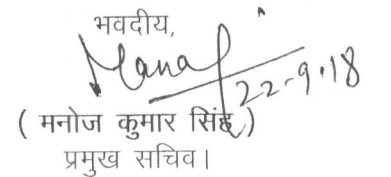 भवदीय,
Manoj
22-9-18
( मनोज कुमार सिंह )
प्रमुख सचिव।